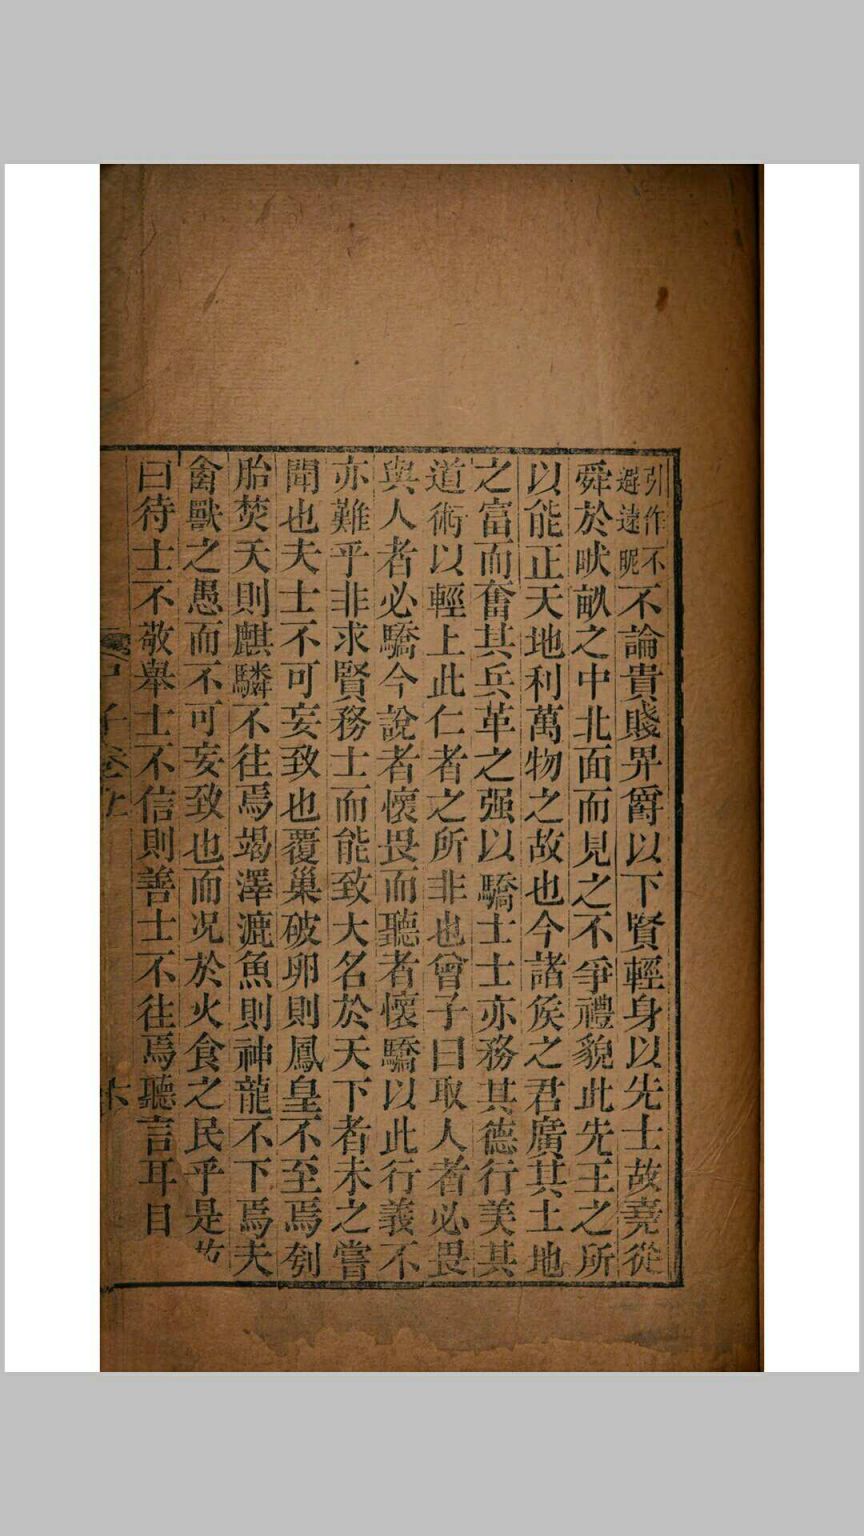 引作不
避遠昵
不論貴賤界爵以下賢輕身以先士故堯從
舜於畎畝之中北面而見之不爭禮貌此先王之所
以能正天地利萬物之故也今諸矦之君廣其土地
之富而奮其兵革之强以驕士士亦務其德行美其
道術以輕上此仁者之所非也曾子曰取人者必畏
與人者必驕今說者懷畏而聽者懷驕以此行義不
亦難乎非求賢務士而能致大名於天下者未之嘗
聞也夫士不可妄致也覆巢破卵則鳳皇不至焉刳
胎焚夭則麒麟不往焉竭澤漉魚則神龍不下焉夫
禽獸之愚而不可妄致也而况於火食之民乎是故
曰待士不敬舉士不信則善士不往焉聽言耳目
尸子卷上